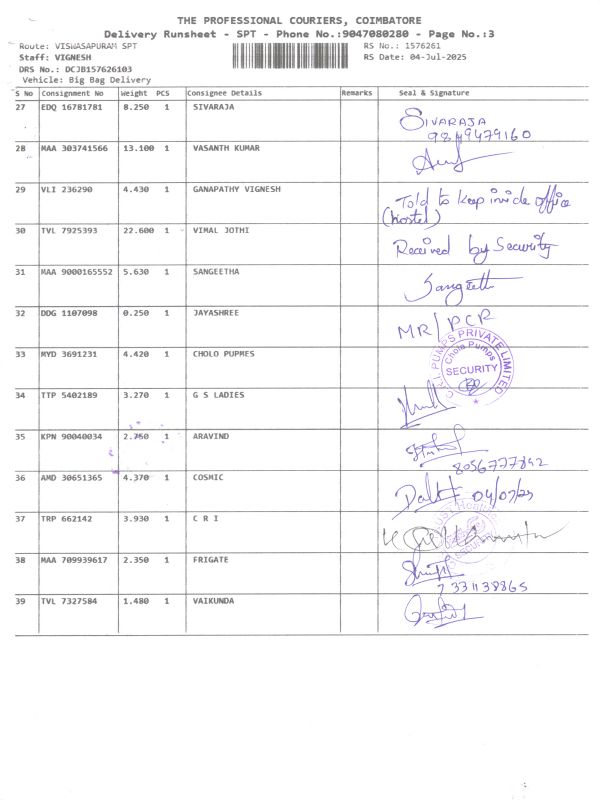 THE PROFESSIONAL COURIERS, COIMBATORE
Delivery Runsheet - SPT - Phone No.:9047080280 - Page No.:3
Route: VISWASAPURAM SPT RS No.: 1576261
Staff: VIGNESH RS Date: 04-Jul-2025
DRS No.: DCJB157626103
Vehicle: Big Bag Delivery
S No Consignment No Weight PCS Consignee Details Remarks Seal & Signature
27 EDQ 16781781 8.250 1 SIVARAJA SIVARAJA
9849479160
28 MAA 303741566 13.100 1 VASANTH KUMAR
29 VLI 236290 4.430 1 GANAPATHY VIGNESH Told to keep inside office
(hostel)
30 TVL 7925393 22.600 1 VIMAL JOTHI Received by Security
31 MAA 9000165552 5.630 1 SANGEETHA Sangeeth
32 DDG 1107098 0.250 1 JAYASHREE MR/PCR
33 MYD 3691231 4.420 1 CHOLO PUPMES C.R.I. PUMPS PRIVATE LIMITED
Chola Pumps
SECURITY
34 TTP 5402189 3.270 1 G S LADIES
35 KPN 90040034 2.750 1 ARAVIND
8056777842
36 AMD 30651365 4.370 1 COSMIC 04/07/25
37 TRP 662142 3.930 1 C R I
38 MAA 709939617 2.350 1 FRIGATE
7331138865
39 TVL 7327584 1.480 1 VAIKUNDA